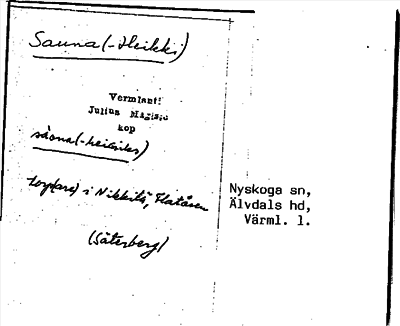 Sauna(-Heikki)
Vermlant!
Julius Mägiste
kop
torp(are) i Nikkilä, Flatåsen
(Säterberg)
Nyskoga sn,
Älvdals hd,
Värml. l.